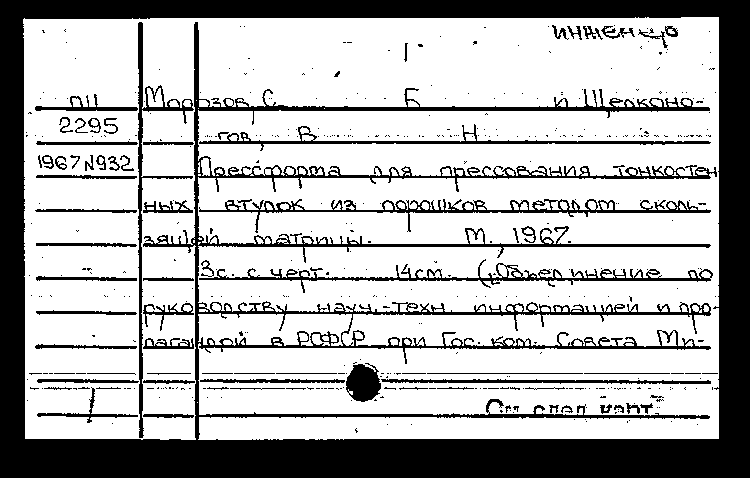 1
ПII Морозов, С. Б. и Щелконо-
2295 гов, В. Н.
1967 N932 Прессформа для прессования тонкостен
ных втулок из порошков методом сколь-
зящей матрицы. М., 1967.
3с. с черт. 14см. (Объединение по
руководству науч.-техн. информацией и про-
пагандой в РСФСР при Гос. ком. Совета Ми-
См. след. карт.